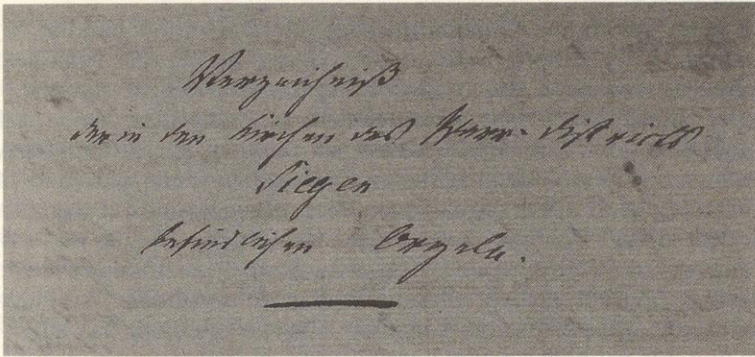 Verzeichniß
der in den Kirchen des Pfarr-Districts
Siegen
befindlichen Orgeln.